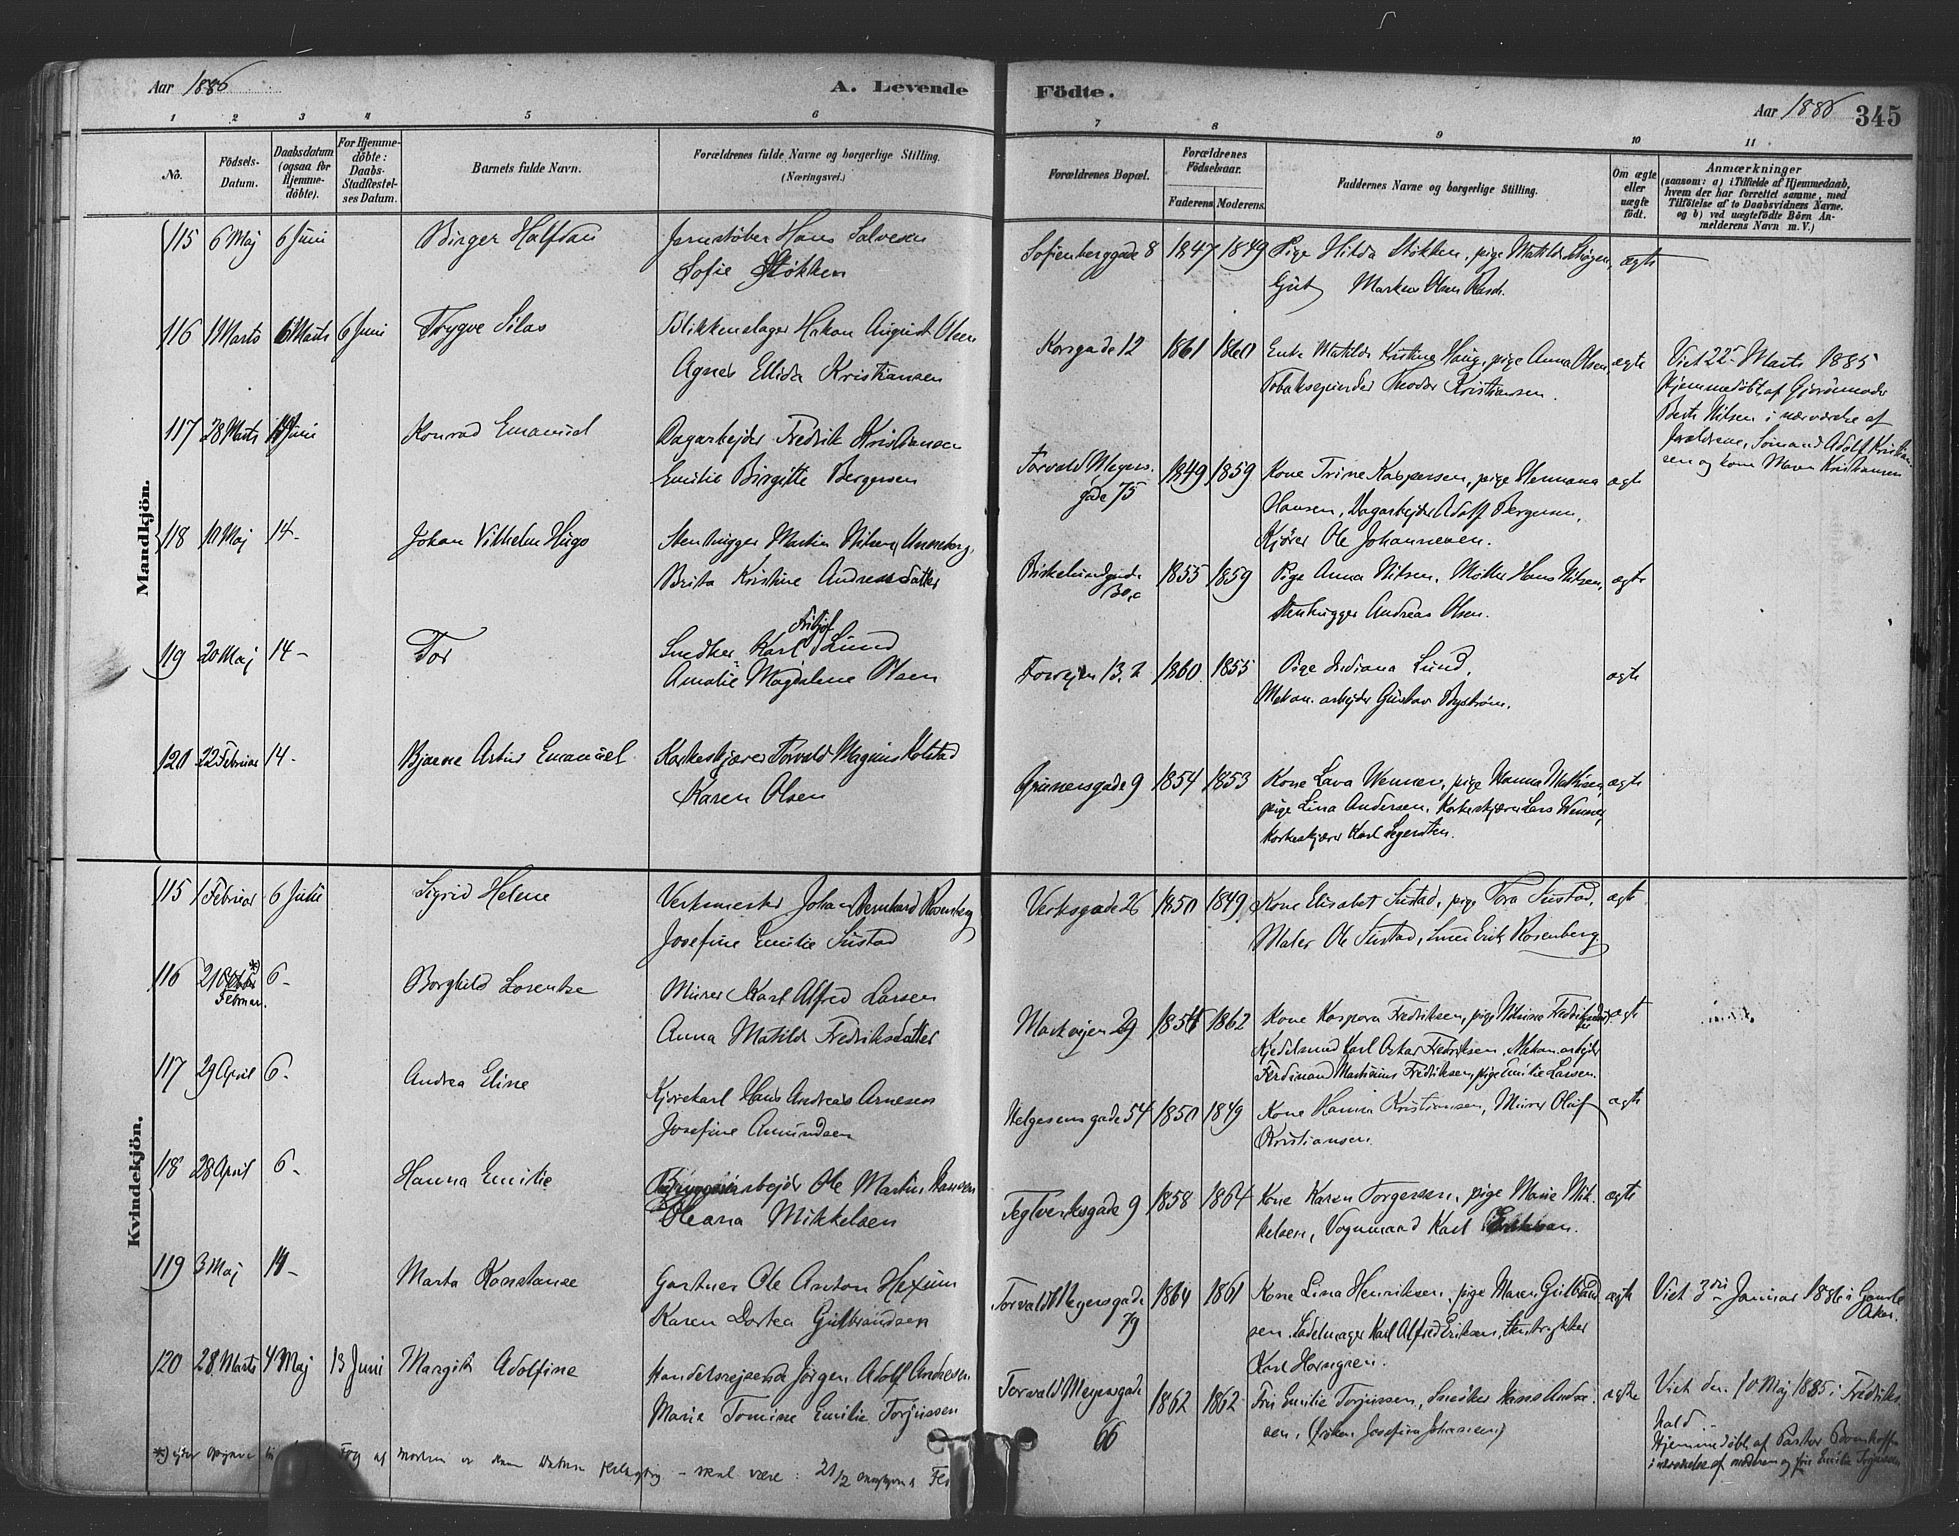 Aar 1886
A. Levende Födte.
Aar 1886 345
1 2 3 4 5 6 7 8 9 10 11
No.
Födsels-Datum.
Daabsdatum (ogsaa for Hjemme-döbte).
For Hjemme-döbte: Daabs-Stadfæstel-ses Datum.
Barnets fulde Navn.
Forældrenes fulde Navne og borgerlige Stilling. (Næringsvei.)
Forældrenes Bopæl.
Forældrenes Födselsaar.
Faderens. Moderens.
Faddernes Navne og borgerlige Stilling.
Om ægte eller uægte födt.
Anmærkninger
(saasom: a) i Tilfælde af Hjemmedaab, hvem der har forrettet samme, med Tilföielse af to Daabsvidners Navne. og b) ved uægtefödte Börn Anmelderens Navn m. V.)
Mandkjön.
115 6 Maj 6 Juni Birger Halfdan Jernstøber Hans Salvesen Sofienberggade 8 1847 1849 Pige Hilda Støkken, pige Matilde ægte
Sofie Støkken Markus Olsen
116 1 Marts 6 Marts 6 Juni Trygve Silas Blikkenslager Hakon August Olsen Korsgade 12 1861 1860 Enke Matilde Kristine Haug, pige Anna Olsen, ægte Viet 22 Marts 1885
Agnes Ellida Kristiansen Tobakspinder Teodor Kristiansen. Hjemmedøbt af Gjordemoder
Berte Nilsen i nærværelse af
forældrene, Sømand Adolf Kristian-
sen og kone Maren Kristiansen
117 28 Marts Juni Konrad Emanuel Dagarbejder Fredrik Kristiansen Torvald Meyers- 1849 1859 Kone Trine Kaspersen, pige Hermana ægte
Emilie Birgitte Bergersen gade 75 Hansen, Dagarbejder Adolf Bergersen,
Kjører Ole Johannesen.
118 10 Maj 14 - Johan Vilhelm Hugo Stenhugger Martin Nilsen Unneberg, Birkelundgade 1855 1859 Pige Anna Nilsen, Møller Hans Nilsen, ægte
Brita Kristine Andreasdatter Stenhugger Andreas Olsen.
119 20 Maj 14 - Tor Snedker Karl Fritjof Lund 13, 2 1860 1855 Pige Indiana Lund, ægte
Amalie Magdalene Olsen Mekan. arbejder Gustav Bystrøm.
120 22 Februar 14 - Bjarne Artur Emanuel Korkeskjærer Torvald Magnus Kolstad Grünersgade 9 1854 1853 Kone Lava Wenner, pige Hanna Mathisen, ægte
Karen Olsen pige Lina Andersen, Korkeskjærer Lars Wenner,
Korkeskjærer Karl
Kvindekjön.
115 1 Februar 6 Juni Sigrid Helene Verkmester Johan Bernhard Rosenberg Verksgade 26 1850 1849 Kone Elisabet Sustad, pige Tora Sustad, ægte
Josefine Emilie Sustad Maler Ole Sustad, Erik Rosenberg
116 21 Februar. *) 6 - Borghild Lorentze Murer Karl Alfred Larsen Markvejen 29 1854 1862 Kone Kaspara Fredriksen, pige ægte
Anna Matilde Fredriksdatter Kjedelsmed Karl Oskar Fredriksen, Mekan. arbejder
Ferdinand Martinius Fredriksen, pige Emilie Larsen.
117 29 April 6 - Andrea Eline Kjørekarl Hans Andreas Arnesen Helgesens gade 54 1850 1849 Kone Hanna Kristiansen, Murer Oluf ægte
Josefine Amundsen Kristiansen.
118 28 April 6 - Hanna Emilie Bryggeriarbejder Ole Martin Hansen Teglverksgade 9 1858 1864 Kone Karen Torgersen, pige Marie Mik- ægte
Oleana Mikkelsen kelsen, Vognmand Karl
119 3 Maj 14 - Marta Konstanse Gartner Ole Anton Hexum Torvald Meyersgade 1864 1861 Kone Lina Henriksen, pige Maren Gulbrand- ægte Viet 3die Januar 1886 i Gamle
Karen Dortea Gulbrandsen 79 sen, Sadelmager Karl Alfred Eriksen, Stentrykker Aker.
Karl Horngren.
120 28 Marts 4 Maj 13 Juni Margit Adolfine Handelsrejsende Jørgen Adolf Andresen Torvald Meyersgade 1862 1862 Frøken Emilie Torjussen, Snedker Hans Andre- ægte Viet den 10 Maj 1885 i Fredriks-
Marie Tomine Emilie Torjussen 66 sen, (frøken Josefine Johansen) hald
Hjemmedøbt af Pastor
i nærværelse af moderen og frk Emilie Torjussen
*) efter opgave af moderen er denne Datum feilagtig - skal være: 21/2